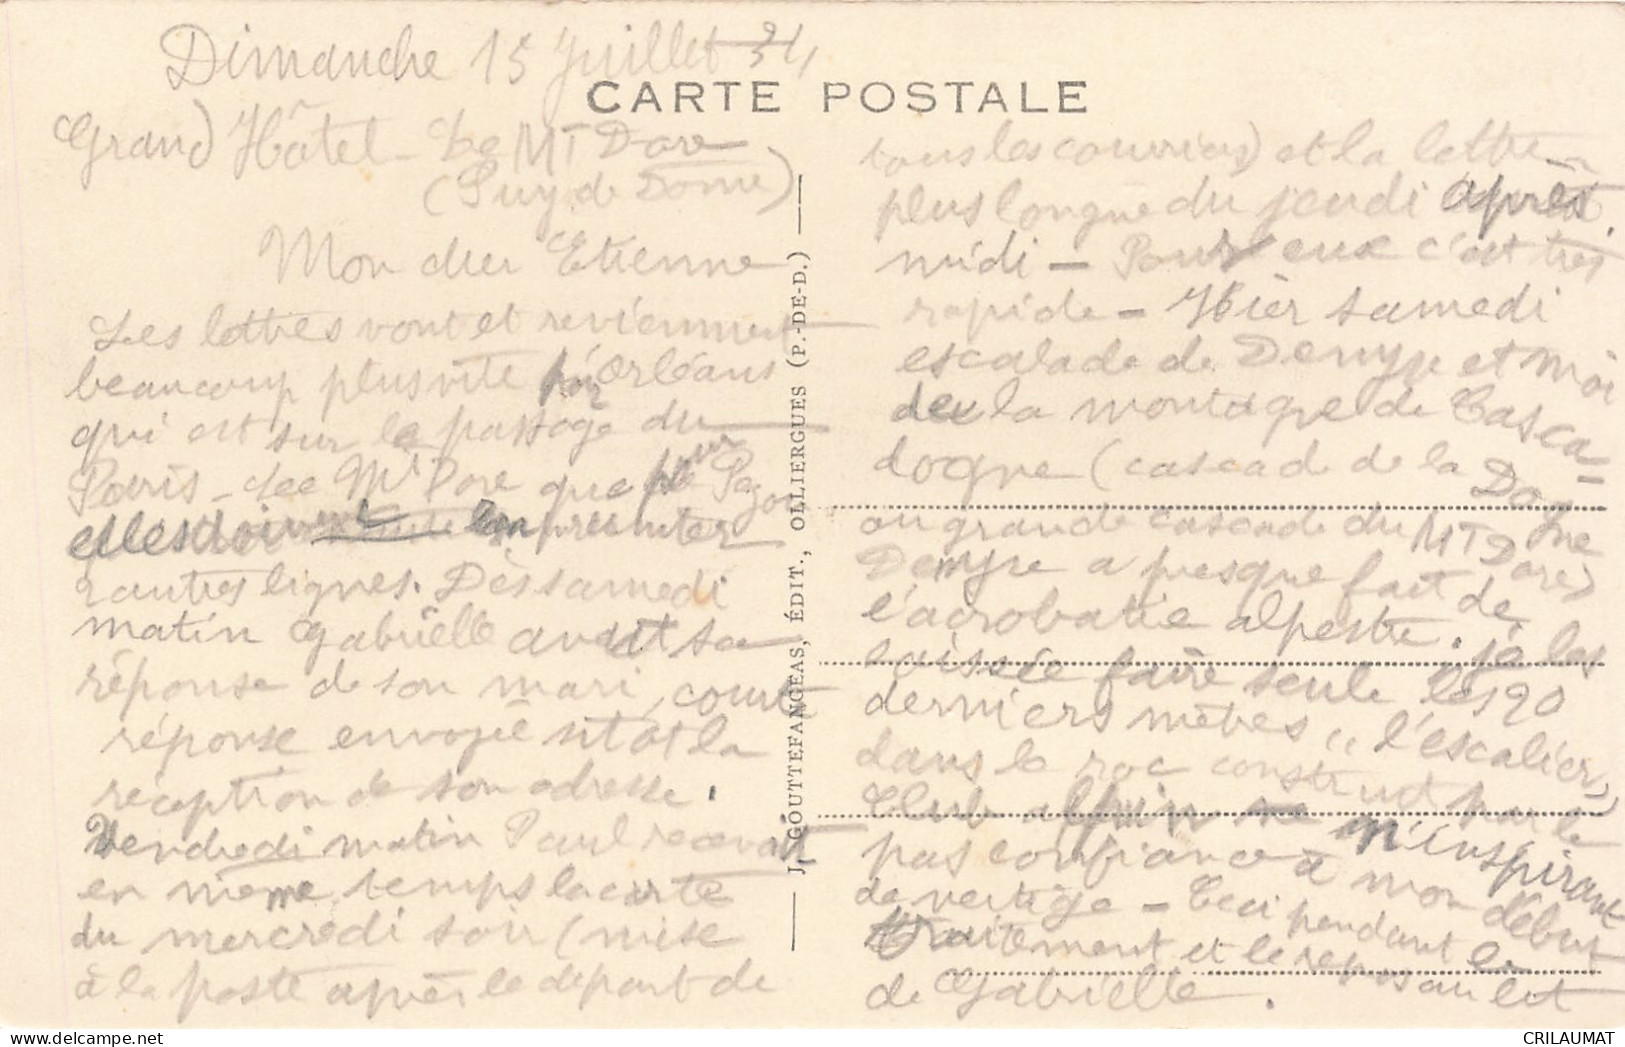 Dimanche 15 Juillet 34
CARTE POSTALE
Grand Hôtel - Le Mt Dore
(Puy de Dôme)
Mon cher Etienne
Les lettres vont et reviennent
beaucoup plus vite par Orléans
qui est sur le passage du
Paris - Le Mt Dore que
elles doivent emprunter
autres lignes. Dès samedi
matin Gabrielle avait sa
réponse de son mari, courte
réponse envoyée sitôt la
réception de son adresse.
Vendredi matin Paul recevait
en même temps la carte
du mercredi soir (mise
à la poste après le départ de
J. GOUTTEFANGEAS, ÉDIT., OLLIERGUES (P.-DE-D.)
tous les courriers) et la lettre
plus longue du jeudi après
midi - Pour eux c'est très
rapide - Hier samedi
escalade de Denyse et moi
de la montagne de Casca-
dogne (cascade de la Dogne
ou grande cascade du Mt Dore)
Denyse a presque fait de
l'acrobatie alpestre. je l'ai
laissée faire seule les 20
derniers mètres, "l'escalier"
dans le roc construit par le
Club alpin ne m'inspirant
pas confiance à mon début
de vertige - Ceci pendant le
traitement et le repos au lit
de Gabrielle.
CRILAUMAT